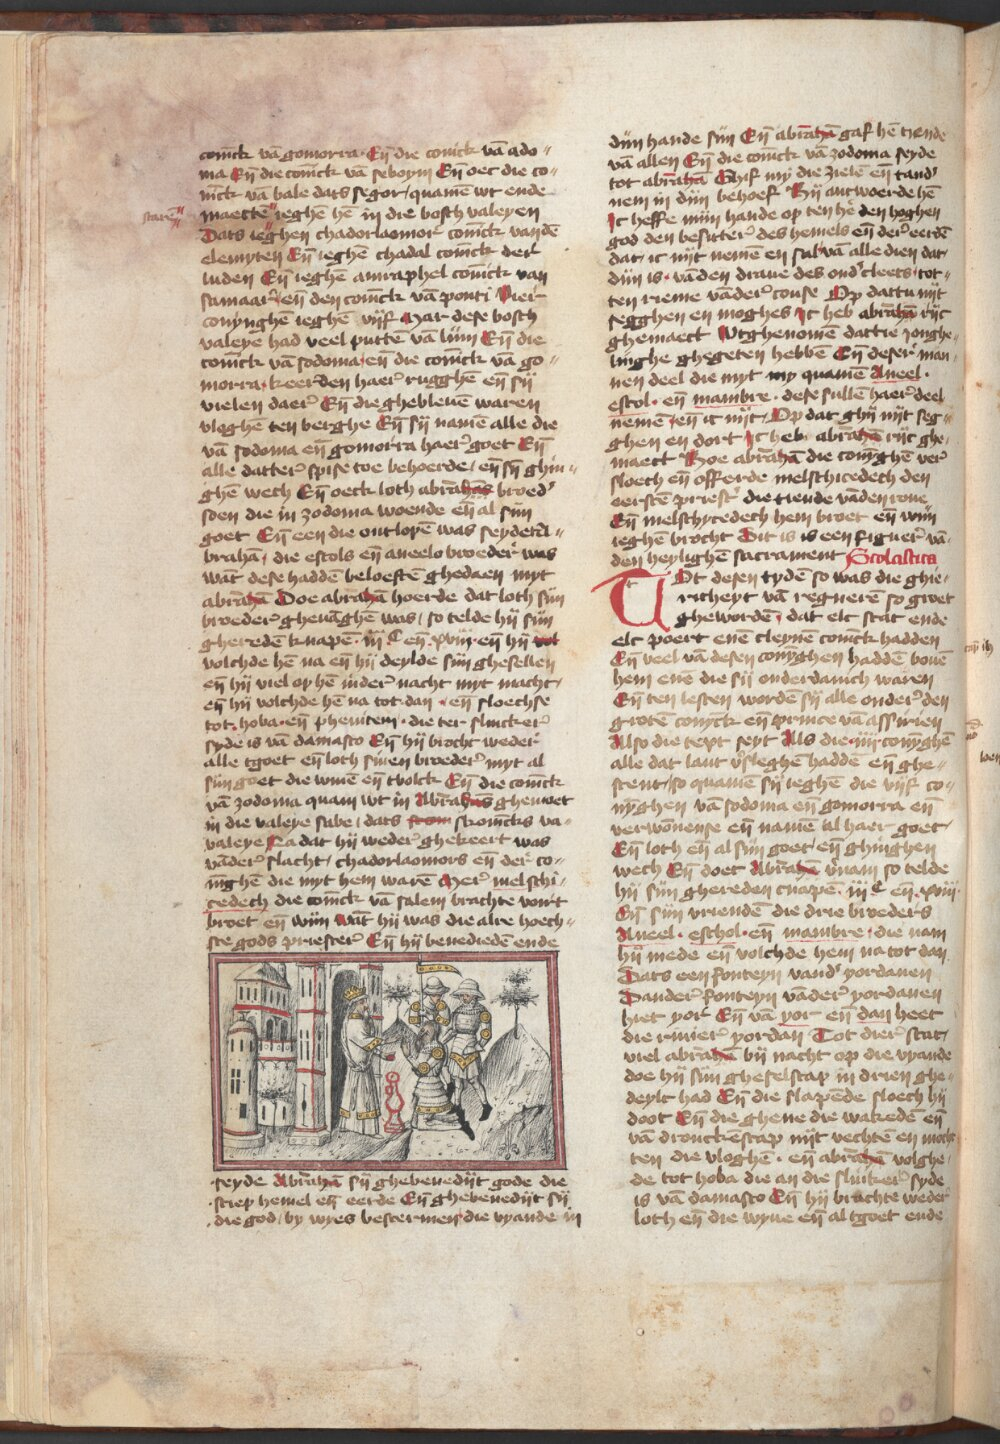 conīck vā gomorra · Eñ die conīck vā ado=
ma Eñ die conīck vā seboym Eñ oec die co=
nīck vā bale dats segor / quamē wt ende
starē
maectē ieghē hē in die bosch valeyen
Dats ieghen chadorlaomor conīck vandē
elemyten Eñ ieghē chadal conīck der
luden Eñ ieghē amraphel conīck van
samaar / eñ den conīck vā ponti Vier
conynghē ieghē vijf Mar dese bosch
valeye had veel puttē vā lijm Eñ die
conīck vā sodoma / eñ die conīck vā go=
morra / keerden haer rugghē eñ sij
vielen daer Eñ die ghebleuē waren
vloghē ten berghe Eñ sij namē alle die
vā sodoma eñ gomorra haer goet Eñ
alle datter spise toe behoerde / eñ sij ghin=
ghē wech Eñ oeck loth abrahās broed
soen die in zodoma woende eñ al sijn
goet Eñ een die ontlopē was seydet a=
brahā / die estols eñ aneelo broeder was
wāt dese haddē beloeftē ghedaen myt
abrahā Doe abrahā hoerde dat loth sijn
broeder gheuāghē was / so telde hij sijn
gheredē knapē · iij c eñ · xviij · eñ hij
volchde hē na eñ hij deylde sijn ghesellen
eñ hij viel op hē inder nacht myt macht /
eñ hij volchde hē na tot dan · eñ sloechse
tot · hoba · eñ phenitem · die ter slincker
syde is vā damasco Eñ hij brocht weder
alle tgoet eñ loth sinen broeder myt al
sijn goet die wiuē eñ tvolck Eñ die conīck
vā zodoma quam wt in Abrahās ghemoet
in die valeye sabe / dats sconīcks va=
valeye Na dat hij weder ghekeert was
vāder slacht / chadorlaomors eñ der co=
nīghē die myt hem warē Mer melschi=
cedech die conīck vā salem brachte voirt
broet eñ wijn Wāt hij was die alre hoech=
ste gods priester Eñ hij benediedē ende
seyde Abrahā sij ghebenedijt gode die
sciep hemel eñ eerde Eñ ghebenedijt sij
die god / by wyes bescermen die vyande in
dijn hande sijn Eñ abrahā gaf hē tiende
vā allen Eñ die conīck vā zodoma seyde
tot abrahā Ghif my die ziele eñ tand
nem in dijn behoef Hij antwoerde hē
Ic heffe mijn hande op ten hē den hoghen
god den besitter des hemels eñ der eerdē
dat ic nijt nemē en sal vā alle dien dat
dijn is · vāden draue des ond cleets / tot=
ten rieme vāder couse Op dattu nijt
segghen en moghes Ic heb abrahā rijc
ghemaect Wtghenomē dattie jonghe=
linghe ghegeten hebbē Eñ deser man=
nen deel die myt my quamē Aneel ·
estol · eñ mambre · dese sullē haer deel
nemē / eñ ic nijt / Op dat ghij nijt seg=
ghen en dort Ic heb abrahā rijc ghe=
maect Hoe abrahā die conȳghē ver
sloech eñ offerde melschicedech den
eerstē priest die tiende vāden roue
Eñ melschycedech hem broet eñ wijn
ieghē brocht Dit is is een figuer vā=
den heylighē sacrament Scolastica
Tot desen tydē so was die ghie=
richeyt vā regnerē so groet
ghewordē / dat elc stat ende
elc poert enē cleynē conīck hadden
Eñ veel vā desen conȳghen haddē bouē
hem enē die sij onderdanich waren
Eñ ten lesten wordē sij alle onder den
grotē conȳck eñ prince vā assirien
Also die text seyt Als die iiij conȳghē
alle dat lant vslegheē hadde eñ ghe=
scent / so quamē sij ieghē die vijf co=
nyghen vā sodoma eñ gomorra eñ
verwōnense eñ namē al haer goet /
Eñ loth eñ al sijn goet / eñ ghinghen
wech Eñ doet Abrahā vnam so telde
hij sijn ghereden cnapē · iij c eñ · xviij ·
Eñ sijn vriendē die drie broeders
Aneel · eschol · eñ mambre / die nam
hij mede eñ volchde hem na tot dan
Dats een fonteyn vand yordanen
Dander fonteyn vāder yordanen
hiet yor Eñ vā yor eñ dan heet
die riuier yordan Tot dier stat /
viel abrahā bij nacht op die vyande
doe hij sijn gheselscap in drien ghe=
deylt had Eñ die slapēde sloech hij
doot Eñ die ghene die wakedē eñ
vā dronckēscap nijt vechtē en moch
ten die vloghē · eñ abrahā volghe=
de tot hoba die an die slinker syde
is vā damasco Eñ hij brachte weder
loth eñ die wyue eñ al tgoet ende